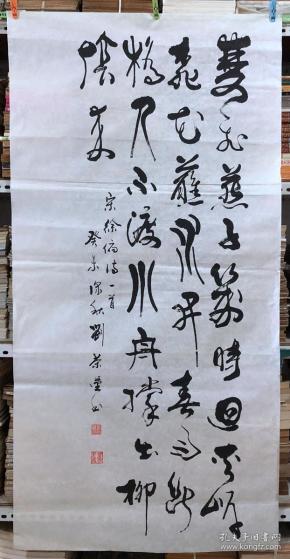 雙飛燕子幾時回夾岸
桃花蘸水開春雨斷
橋人不渡小舟撐出柳
陰來
宋徐俯詩一首
癸未深秋劉
孔夫子旧书网